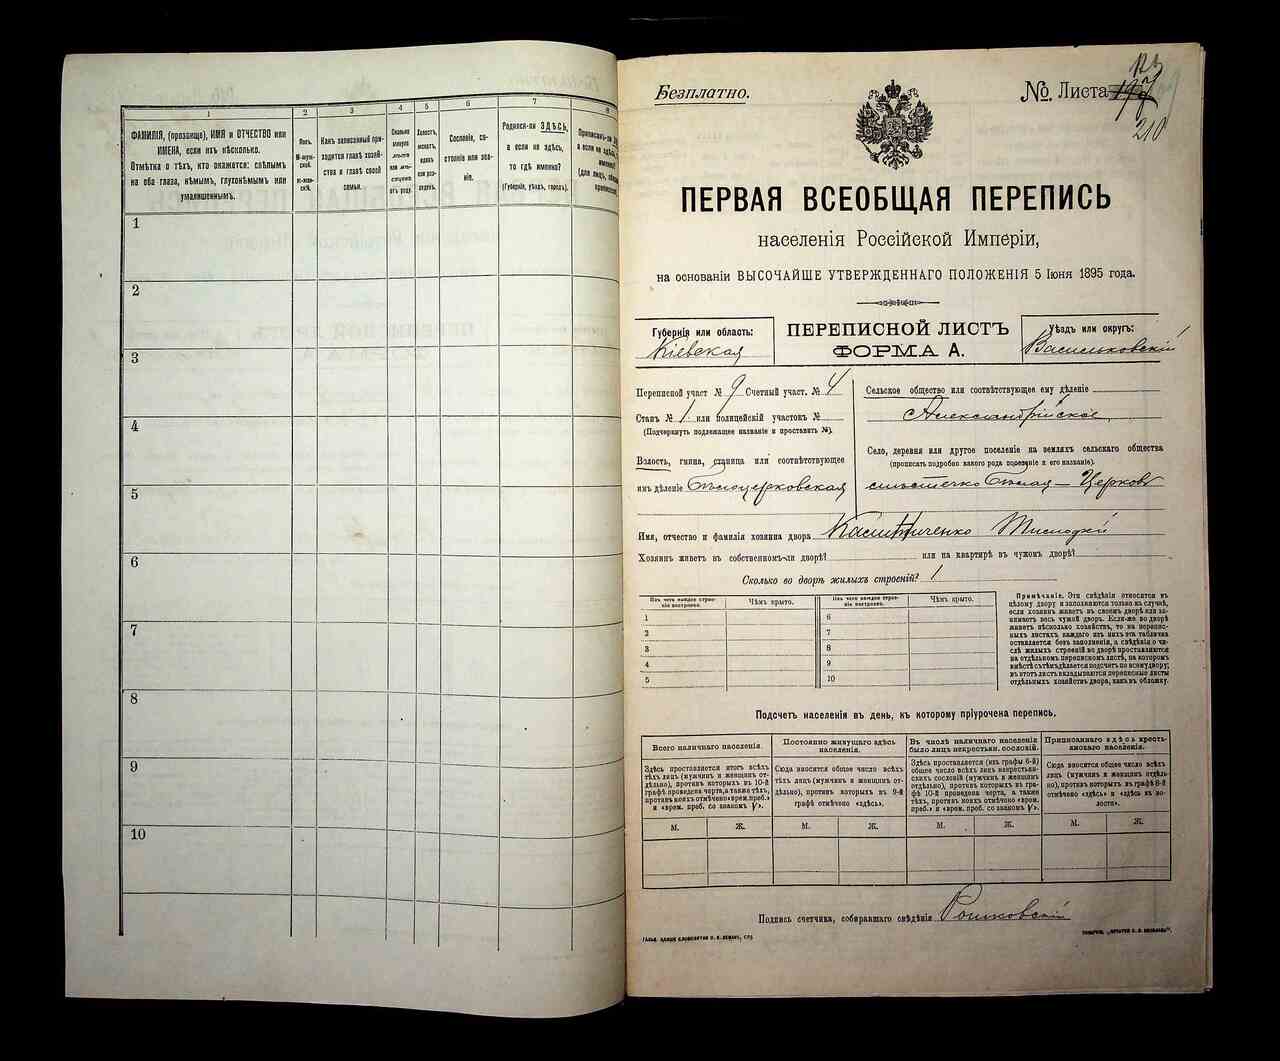 1
2
3
4
5
6
7
8
ФАМИЛІЯ, (прозвище), ИМЯ и ОТЧЕСТВО или
ИМЕНА, если ихъ нѣсколько.
Отмѣтка о тѣхъ, кто окажется: слѣпымъ
на оба глаза, нѣмымъ, глухонѣмымъ или
умалишеннымъ.
Полъ.
М-мужской.
Ж-женскій.
Какъ записанный при-
ходится главѣ хозяй-
ства и главѣ своей
семьи.
Сколько
минуло
лѣтъ
или мѣ-
сяцевъ
отъ роду.
Холостъ,
женатъ,
вдовъ
или раз-
веденъ.
Сословіе, со-
стояніе или зва-
ніе.
Родился-ли ЗДѢСЬ,
а если не здѣсь,
то гдѣ именно?
(Губернія, уѣздъ, городъ).
Приписанъ-ли
а если не здѣсь,
именно?
(для лицъ,
1
2
3
4
5
6
7
8
9
10
Безплатно.
№ Листа
210
ПЕРВАЯ ВСЕОБЩАЯ ПЕРЕПИСЬ
населенія Россійской Имперіи,
на основаніи ВЫСОЧАЙШЕ УТВЕРЖДЕННАГО ПОЛОЖЕНІЯ 5 Іюня 1895 года.
Губернія или область:
Кіевская
ПЕРЕПИСНОЙ ЛИСТЪ
ФОРМА А.
Уѣздъ или округъ:
Васильковскій
Переписной участ № 9 Счетный участ. № 4
Станъ № 1 или полицейскій участокъ №
(Подчеркнуть подлежащее названіе и проставить №).
Волость, гмина, станица или соотвѣтствующее
имъ дѣленіе Бѣлоцерковская
Сельское общество или соотвѣтствующее ему дѣленіе
Александрійское
Село, деревня или другое поселеніе на земляхъ сельскаго общества
(прописать подробно какого рода поселеніе и его названіе).
мѣстечко Бѣлая-Церковь
Имя, отчество и фамилія хозяина двора
Хозяинъ живетъ въ собственномъ-ли дворѣ? или на квартирѣ въ чужомъ дворѣ?
Сколько во дворѣ жилыхъ строеній? 1
Изъ чего каждое строе-
ніе построено.
Чѣмъ крыто.
Изъ чего каждое строе-
ніе построено.
Чѣмъ крыто.
1
2
3
4
5
6
7
8
9
10
Примѣчаніе. Эти свѣдѣнія относятся къ
цѣлому двору и заполняются только въ случаѣ,
если хозяинъ живетъ въ своемъ дворѣ или за-
нимаетъ весь чужой дворъ. Если-же во дворѣ
живетъ нѣсколько хозяйствъ, то на перепис-
ныхъ листахъ каждаго изъ нихъ эта табличка
оставляется безъ заполненія, а свѣдѣнія о чи-
слѣ жилыхъ строеній во дворѣ проставляются
на отдѣльномъ переписномъ листѣ, на которомъ
вмѣстѣ съ тѣмъ дѣлается подсчетъ по всему двору;
въ этотъ листъ вкладываются переписные листы
отдѣльныхъ хозяйствъ двора, какъ въ обложку.
Подсчетъ населенія въ день, къ которому пріурочена перепись.
Всего наличнаго населенія.
Здѣсь проставляется итогъ всѣхъ
тѣхъ лицъ (мужчинъ и женщинъ от-
дѣльно), противъ которыхъ въ 10-й
графѣ проведена черта, а также тѣхъ,
противъ коихъ отмѣчено «врем. преб.»
и «врем. преб. со знакомъ V».
Постоянно живущаго здѣсь
населенія.
Сюда вносится общее число всѣхъ
тѣхъ лицъ (мужчинъ и женщинъ отдѣ-
льно), противъ которыхъ въ 9-й
графѣ отмѣчено «здѣсь».
Въ числѣ наличнаго населенія
было лицъ некрестьян. сословій.
Здѣсь проставляется (изъ графы 6-й)
общее число всѣхъ лицъ некрестьян-
скихъ сословій (мужчинъ и женщинъ
отдѣльно), противъ которыхъ въ гра-
фѣ 10-й проведена черта, а также
тѣхъ, противъ коихъ отмѣчено «врем.
преб.» и «врем. преб. со знакомъ V».
Приписаннаго здѣсь кресть-
янскаго населенія.
Сюда вносится общее число всѣхъ
лицъ (мужчинъ и женщинъ отдѣль-
но), противъ которыхъ въ графѣ 8-й
отмѣчено «здѣсь» и «здѣсь въ во-
лости».
М. Ж. М. Ж. М. Ж. М. Ж.
Подпись счетчика, собиравшаго свѣдѣнія